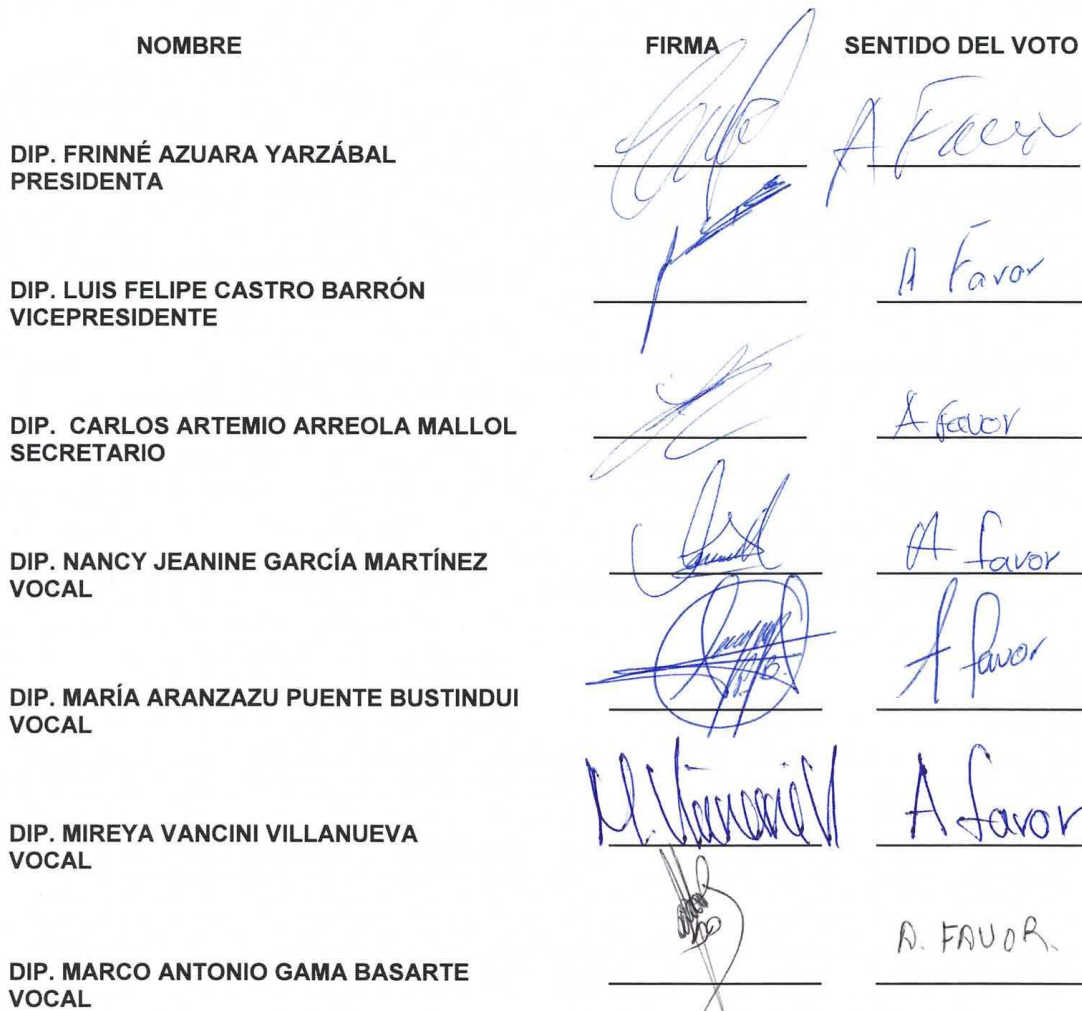 NOMBRE FIRMA SENTIDO DEL VOTO
DIP. FRINNÉ AZUARA YARZÁBAL
PRESIDENTA
A Favor
DIP. LUIS FELIPE CASTRO BARRÓN
VICEPRESIDENTE
A Favor
DIP. CARLOS ARTEMIO ARREOLA MALLOL
SECRETARIO
A favor
DIP. NANCY JEANINE GARCÍA MARTÍNEZ
VOCAL
A favor
DIP. MARÍA ARANZAZU PUENTE BUSTINDUI
VOCAL
A favor
DIP. MIREYA VANCINI VILLANUEVA
VOCAL
A favor
DIP. MARCO ANTONIO GAMA BASARTE
VOCAL
A. FAVOR.